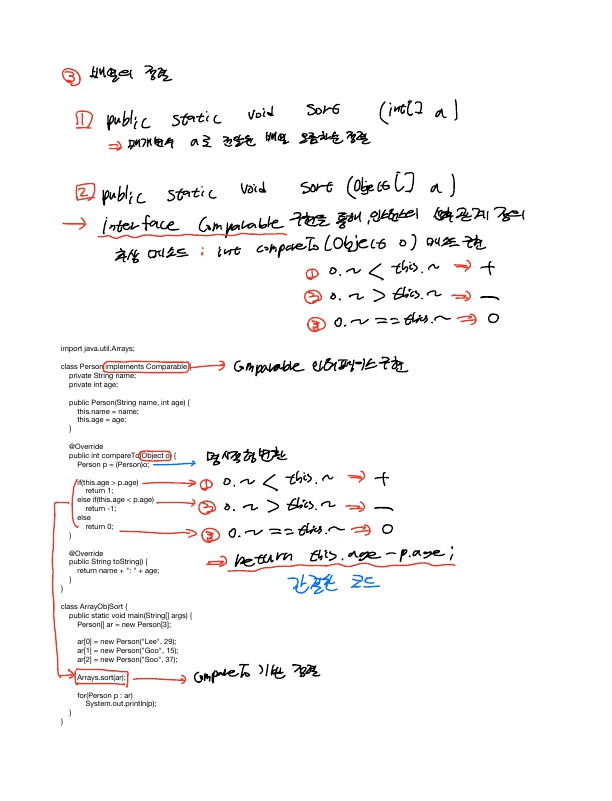 ③ 배열의 정렬
1 public static void sort (int[] a)
⇒ 매개변수 a로 전달된 배열 오름차순 정렬
2 public static void sort (Object[] a)
→ interface Comparable 구현을 통해, 인스턴스의 순서 관계 정의
추상 메소드 : int compareTo(Object o) 메소드 구현
① o.~ < this.~ ⇒ +
② o.~ > this.~ ⇒ -
③ o.~ == this.~ ⇒ 0
import java.util.Arrays;
class Person implements Comparable { → Comparable 인터페이스 구현
private String name;
private int age;
public Person(String name, int age) {
this.name = name;
this.age = age;
}
@Override
public int compareTo(Object o) {
Person p = (Person)o; → 명시적 형변환
if(this.age > p.age) → ① o.~ < this.~ ⇒ +
return 1;
else if(this.age < p.age) → ② o.~ > this.~ ⇒ -
return -1;
else
return 0; → ③ o.~ == this.~ ⇒ 0
}
⇒ return this.age - p.age;
간결한 코드
@Override
public String toString() {
return name + ": " + age;
}
}
class ArrayObjSort {
public static void main(String[] args) {
Person[] ar = new Person[3];
ar[0] = new Person("Lee", 29);
ar[1] = new Person("Goo", 15);
ar[2] = new Person("Soo", 37);
Arrays.sort(ar); → CompareTo 기반 정렬
for(Person p : ar)
System.out.println(p);
}
}